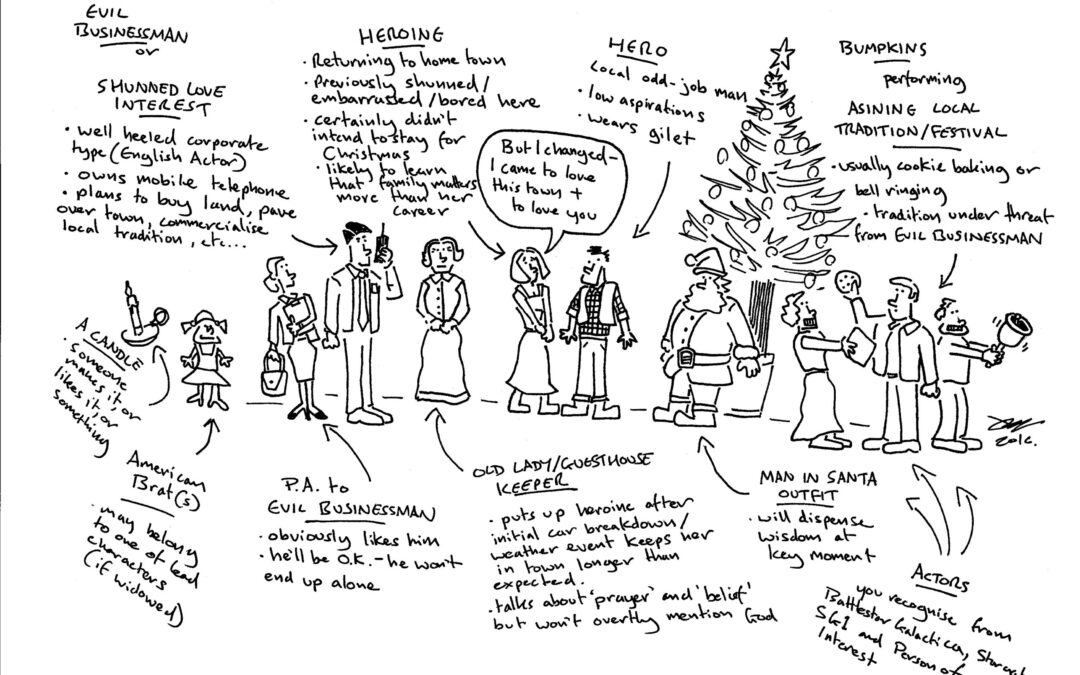 EVIL
BUSINESSMAN
or
SHUNNED LOVE
INTEREST
• well heeled corporate
type (English Actor)
• owns mobile telephone
• plans to buy land, pave
over town, commercialise
local tradition, etc...
HEROINE
• Returning to home town
• Previously shunned/
embarrassed/bored here
• certainly didn't
intend to stay for
Christmas
• likely to learn
that family matters
more than her
career
But I changed-
I came to love
this town +
to love you
HERO
Local odd-job man
• low aspirations
• wears gilet
BUMPKINS
performing
ASINING LOCAL
TRADITION/FESTIVAL
• usually cookie baking or
bell ringing
• tradition under threat
from EVIL BUSINESSMAN
A CANDLE
• someone
makes it or
likes it, or
something
American
Brat(s)
• may belong
to one of lead
characters
(if widowed)
P.A. to
EVIL BUSINESSMAN
• obviously likes him
• he'll be O.K. - he won't
end up alone
OLD LADY/GUESTHOUSE
KEEPER
• puts up heroine after
initial car breakdown/
weather event keeps her
in town longer than
expected.
• talks about 'prayer' and 'belief'
but won't overtly mention God
MAN IN SANTA
OUTFIT
• will dispense
wisdom at
key moment
ACTORS
you recognise from
Battlestar Galactica,
SG1 and Person of
Interest